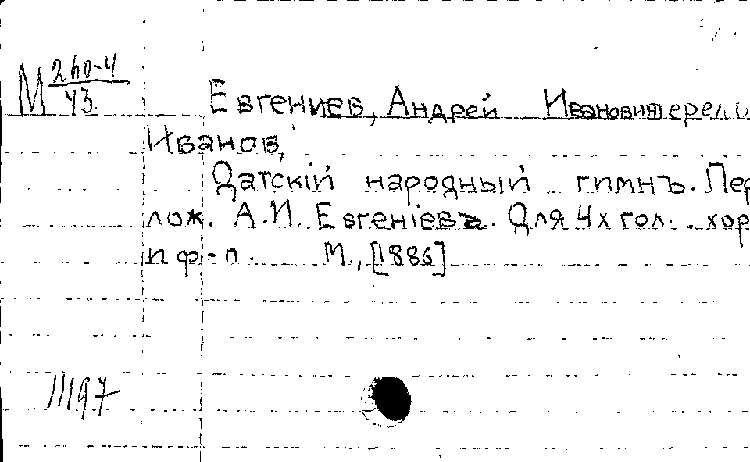 М 260-4
43
Евгениев, Андрей Иванович
Иванов,
Датскій народный гимнъ. Пер
лож. А.И. Евгеніевъ. Для 4х гол. хор
п ф-п М., [1886]
11197